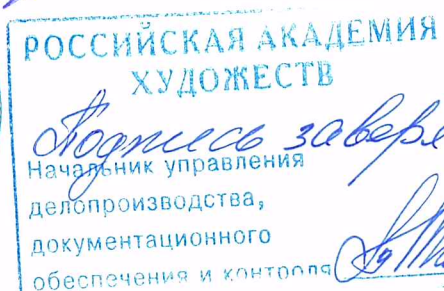 РОССИЙСКАЯ АКАДЕМИЯ
ХУДОЖЕСТВ
Подпись заверя
Начальник управления
делопроизводства,
документационного
обеспечения и контроля